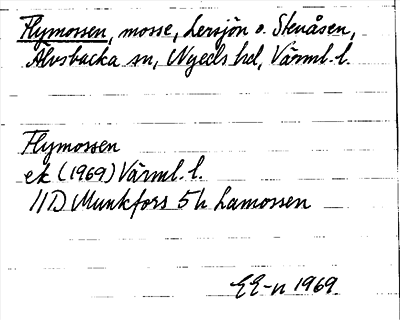 Flymossen, mosse, Lersjön o. Stenåsen,
Älvsbacka sn, Nyeds hd, Värml. l.
Flymossen
ek (1969) Värml. l.
11D Munkfors 5h Lamossen
EE-n 1969